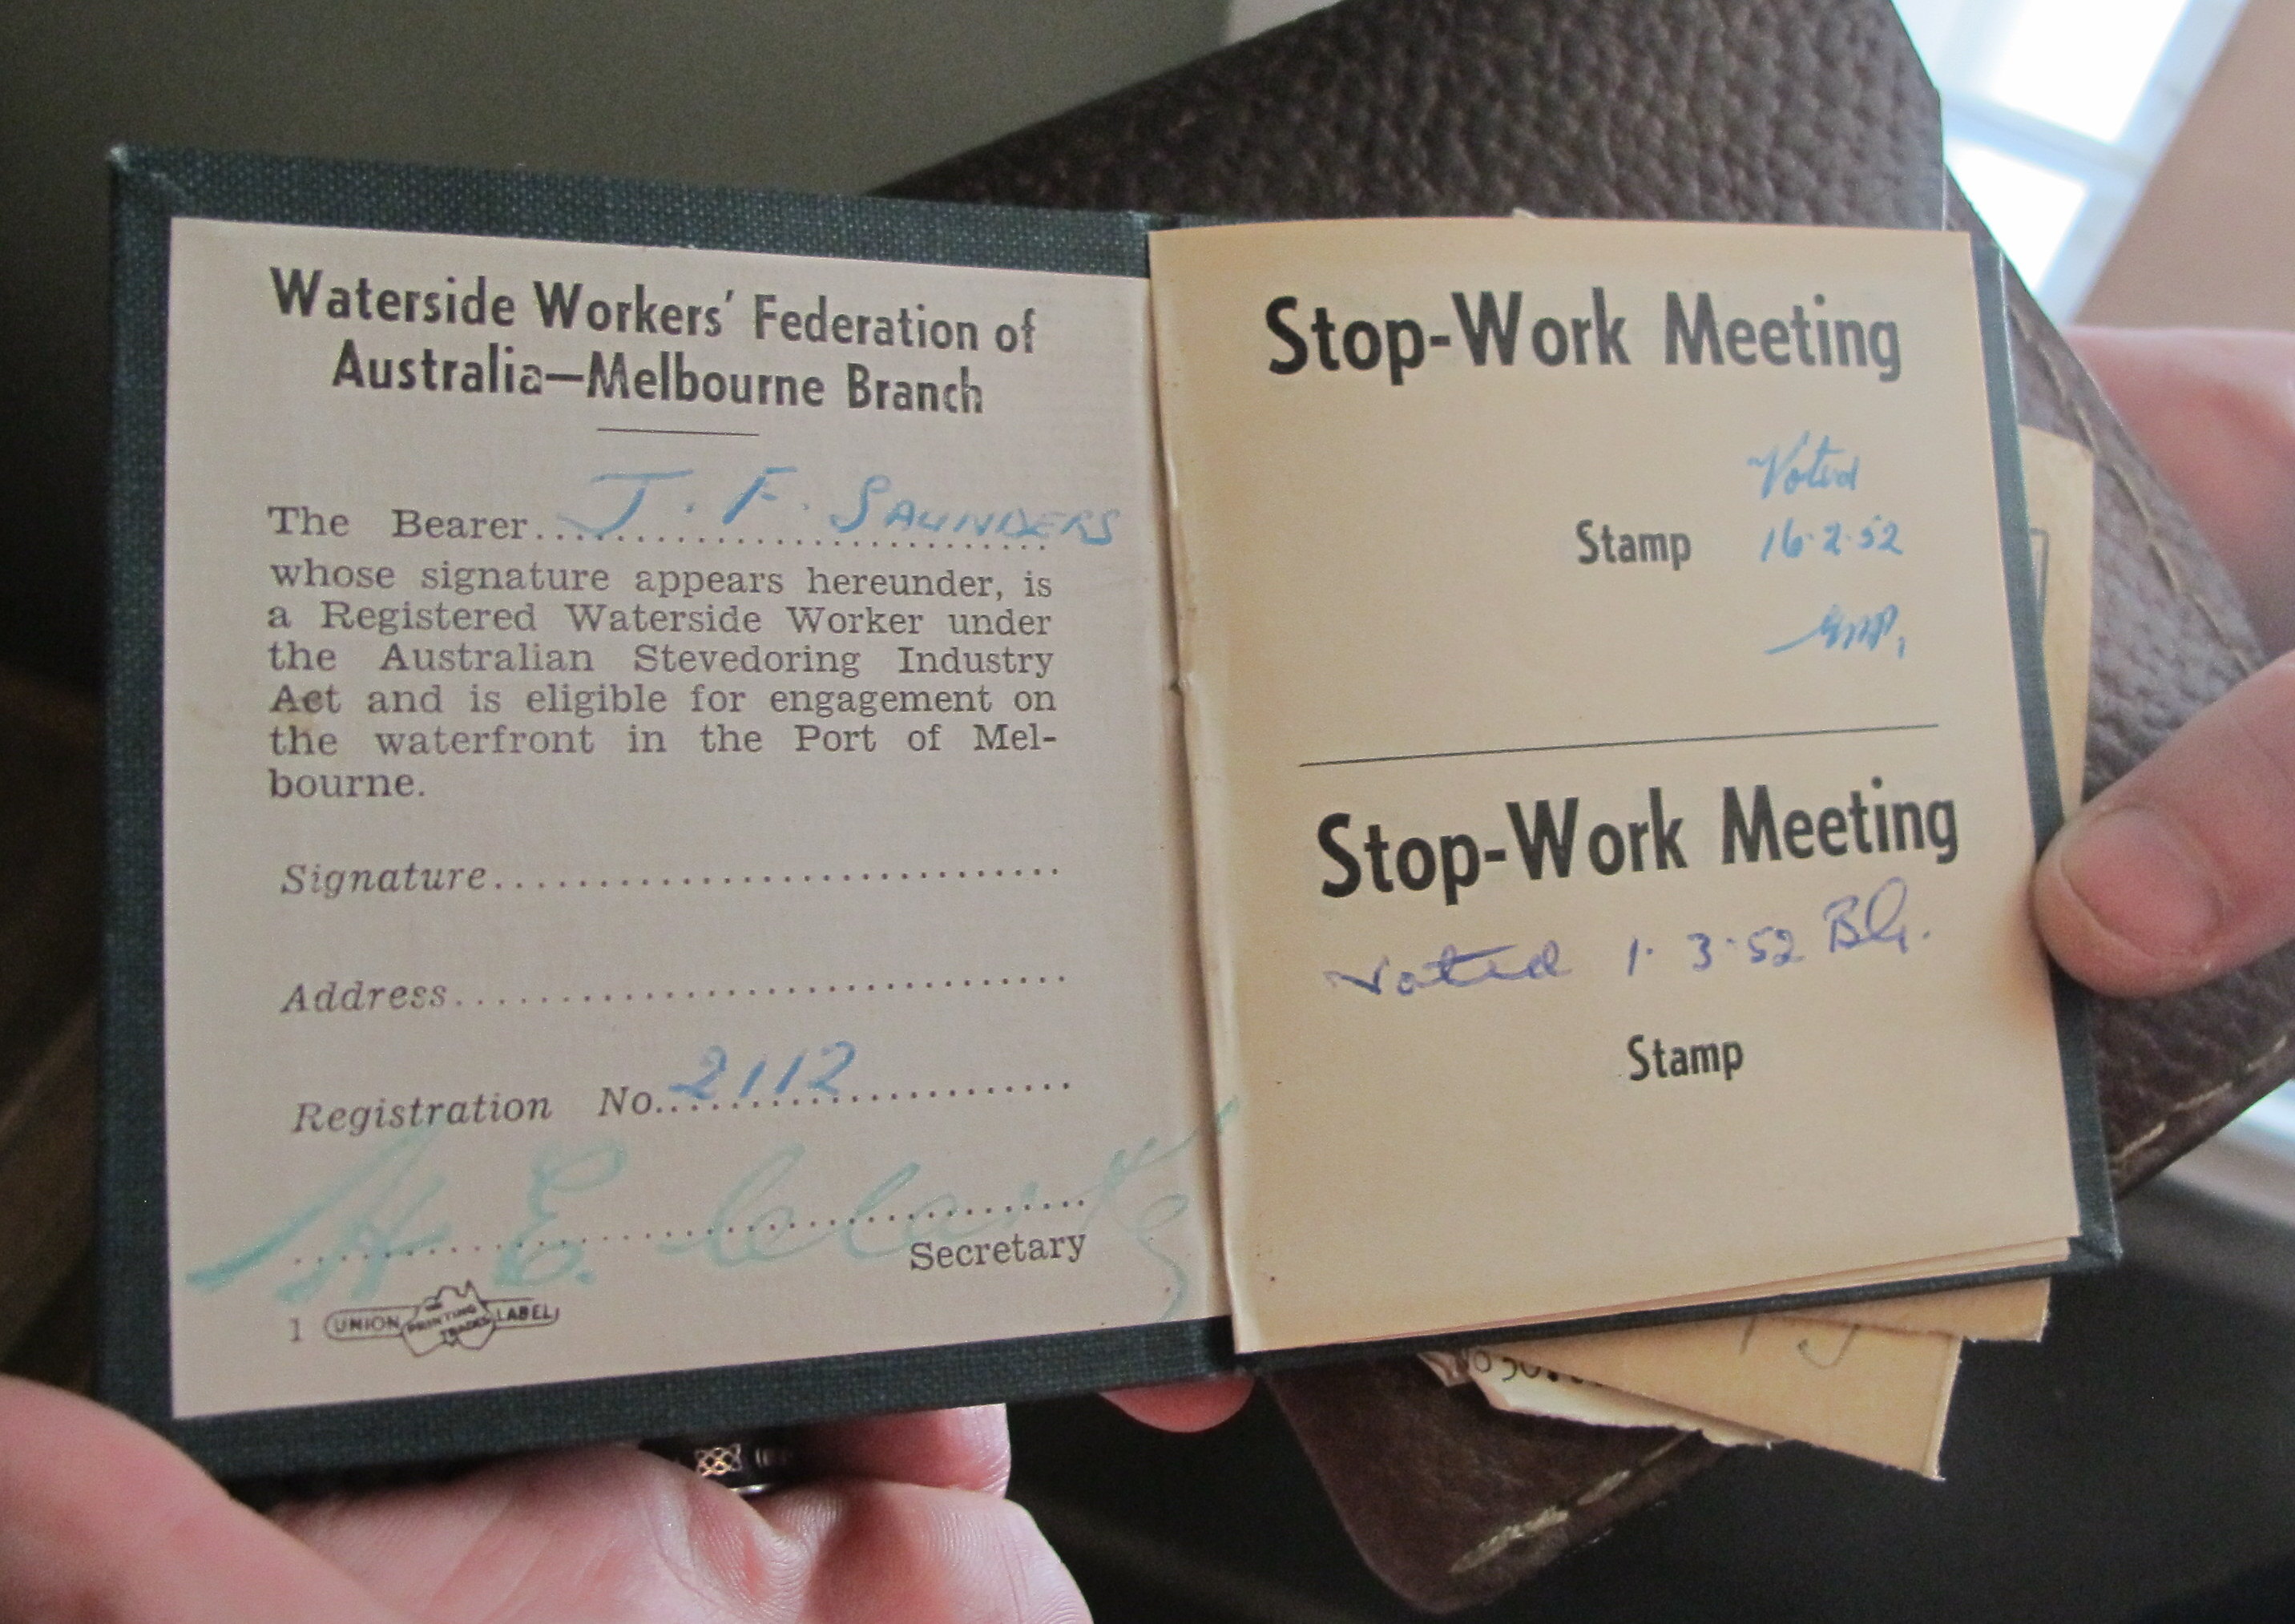 Waterside Workers' Federation of
Australia—Melbourne Branch
The Bearer J. F. SAUNDERS
whose signature appears hereunder, is
a Registered Waterside Worker under
the Australian Stevedoring Industry
Act and is eligible for engagement on
the waterfront in the Port of Mel-
bourne.
Signature
Address
Registration No. 2112
H E. Clarke
Secretary
1 UNION PRINTING TRADES LABEL
Stop-Work Meeting
Voted
Stamp 16·2·52
Stop-Work Meeting
Voted 1·3·52
Stamp